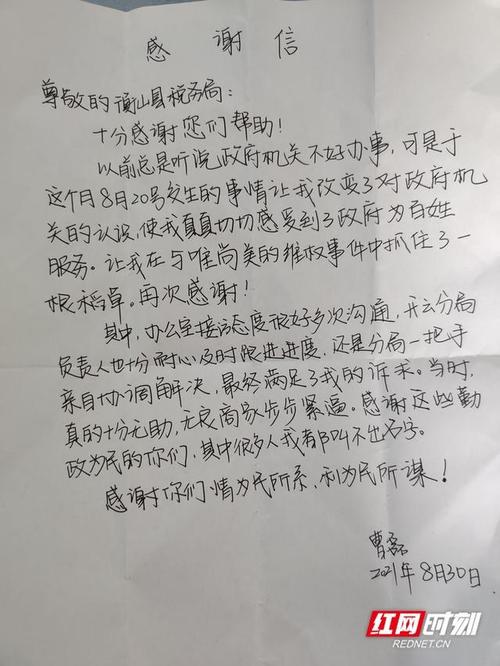 感谢信
尊敬的衡山县税务局：
十分感谢您们帮助！
以前总是听说政府机关不好办事，可是于
这个月8月20号发生的事情让我改变了对政府机
关的认识，使我真真切切感受到了政府为百姓
服务。让我在与唯尚美的维权事件中抓住了一
根稻草。再次感谢！
其中，办公室接话态度很好多次沟通，开云分局
负责人也十分耐心及时跟进进度，还是分局一把手
亲自协调解决，最终满足了我的诉求。当时，
真的十分无助，无良商家步步紧逼。感谢这些勤
政为民的你们，其中很多人我都叫不出名字。
感谢你们情为民所系，利为民所谋！
曹磊
2021年8月30日
红网时刻
REDNET.CN